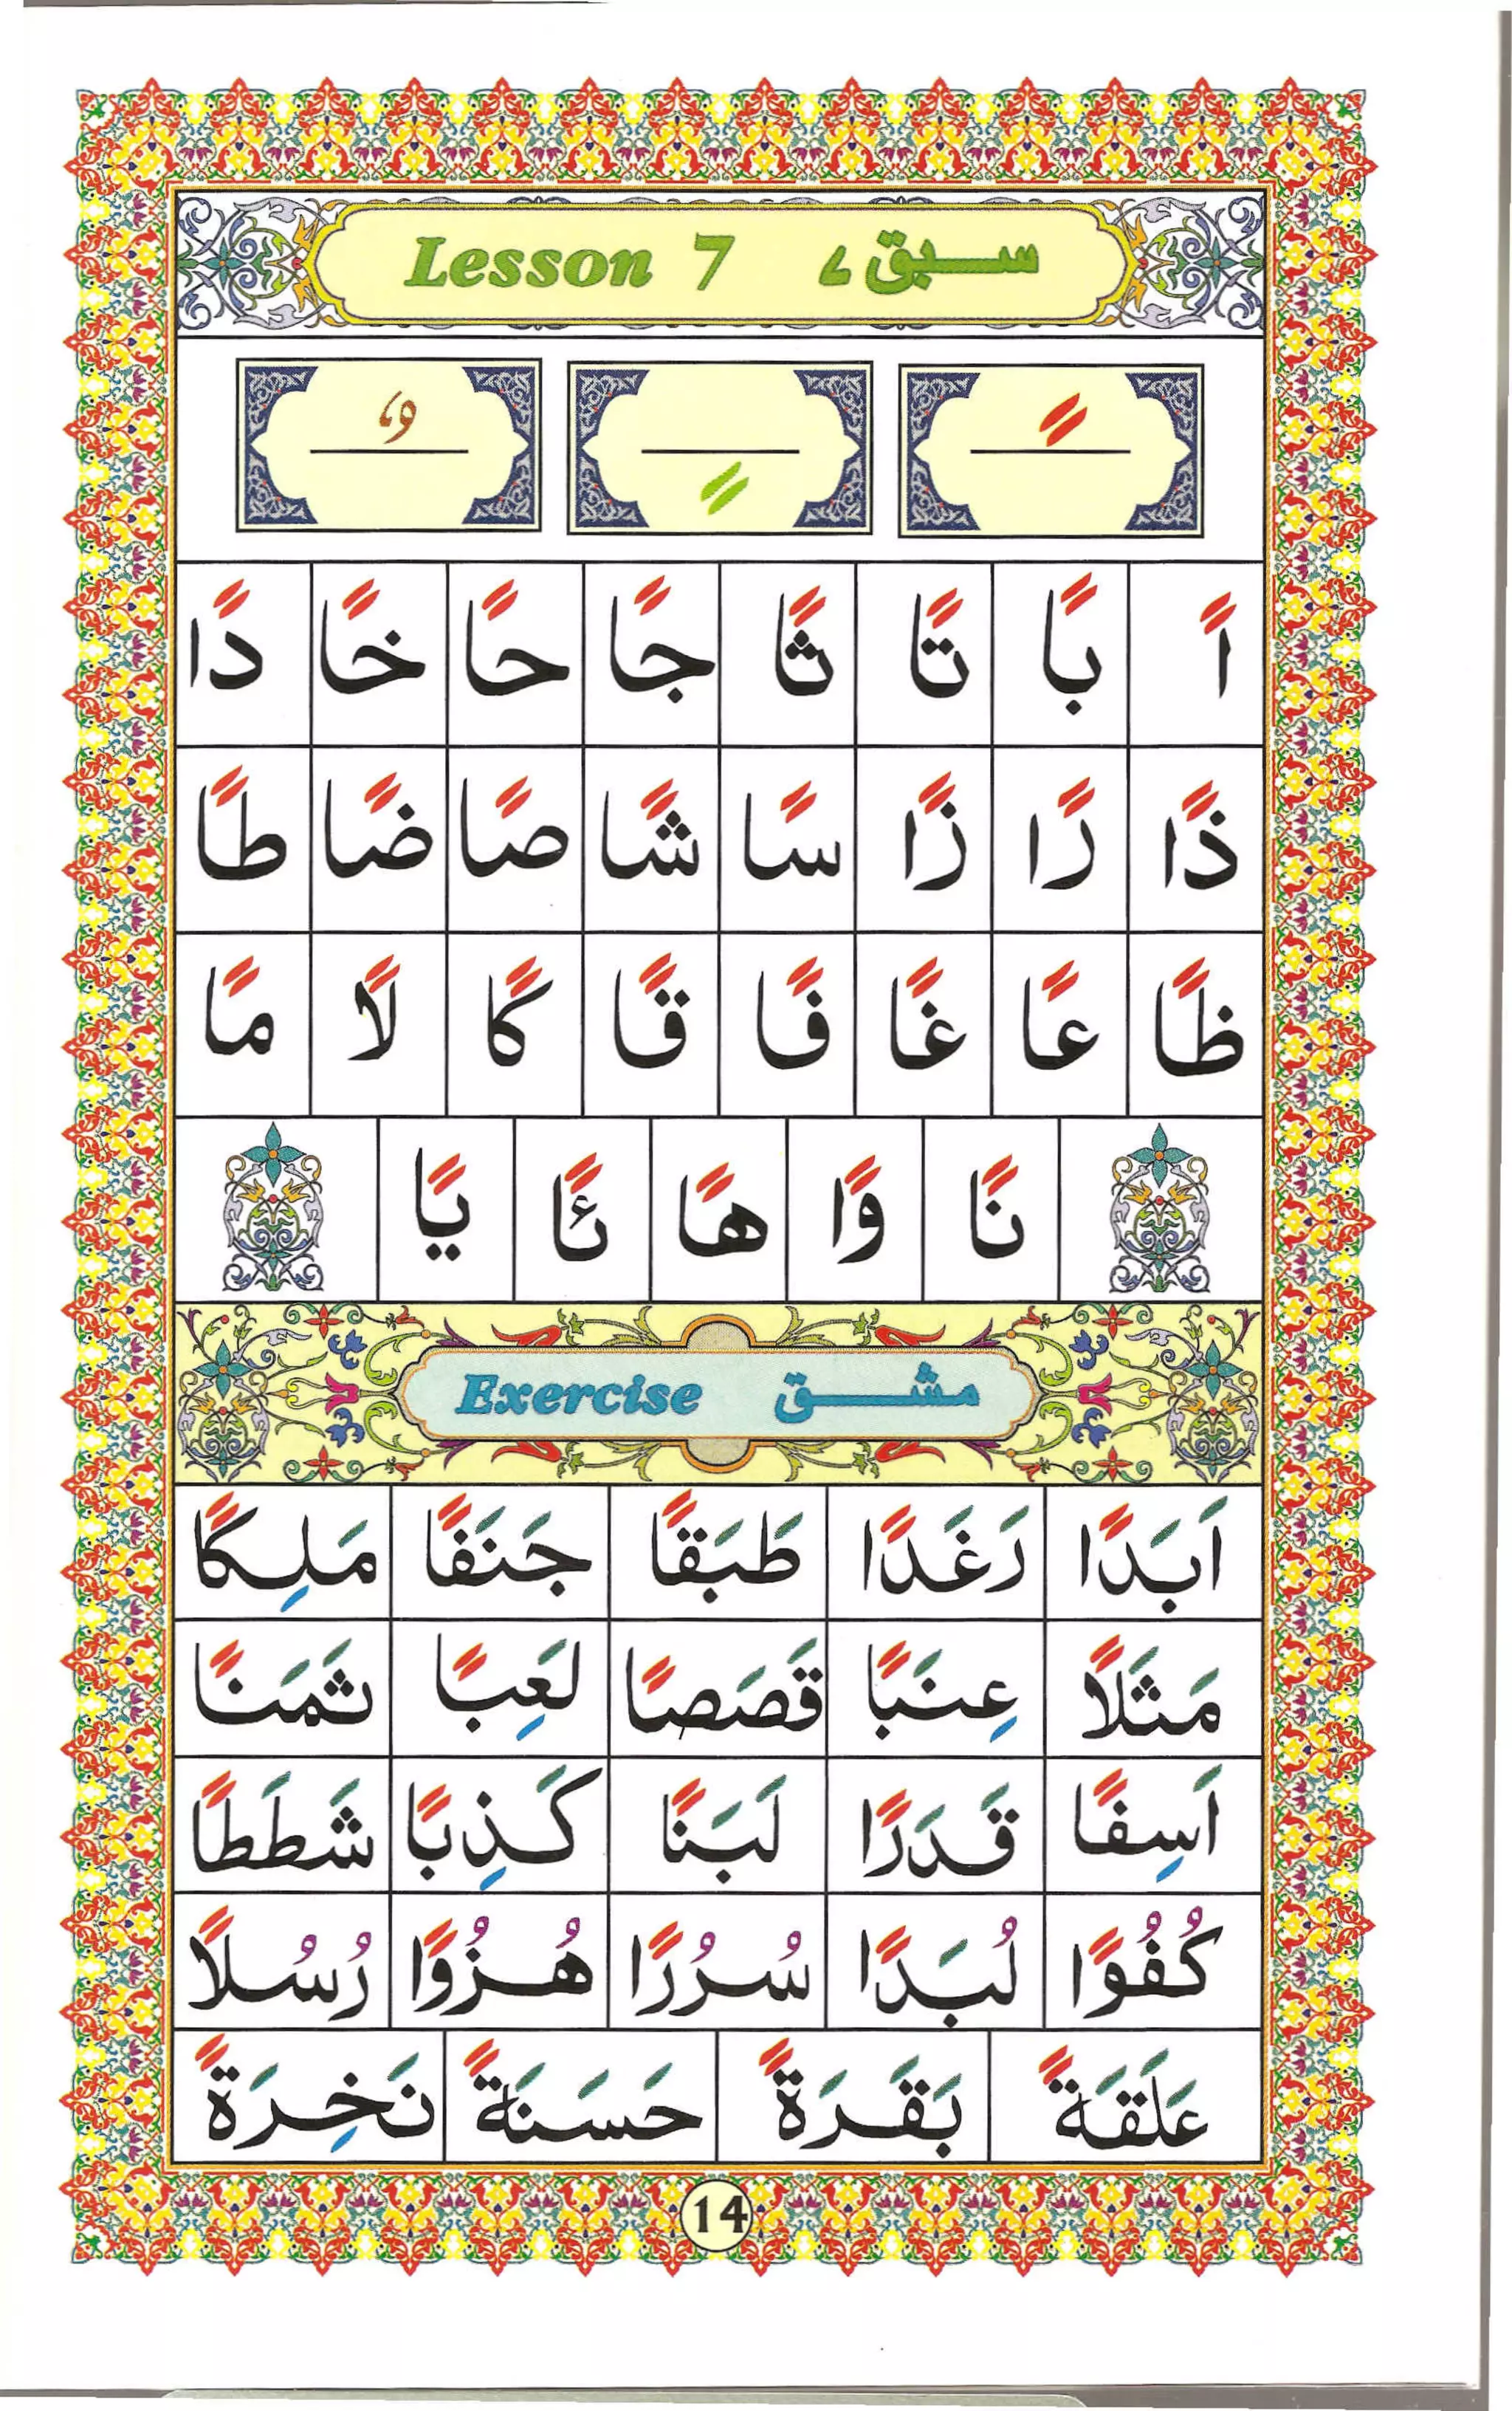 Lesson 7 سبق ۷
ً ٍ ٌ
اً بًا تًا ثًا جًا حًا خًا دًا
ذًا رًا زًا سًا شًا صًا ضًا طًا
ظًا عًا غًا فًا قًا كًا لًا مًا
نًا وًا هًا ئًا يًا
Exercise مشق
اَبَدًا رَغَدًا طَبَقًا جَنَفًا مَلِكًا
مَثَلًا عِنَبًا قَصَصًا لَعِبًا ثَمَنًا
اَسِفًا قَدَرًا لَبَنًا كَذِبًا شَطَطًا
كُفُوًا لُبَدًا سُرُرًا هُزُوًا رُسُلًا
عَلَقَةً بَقَرَةً حَسَنَةً نَخِرَةً
14